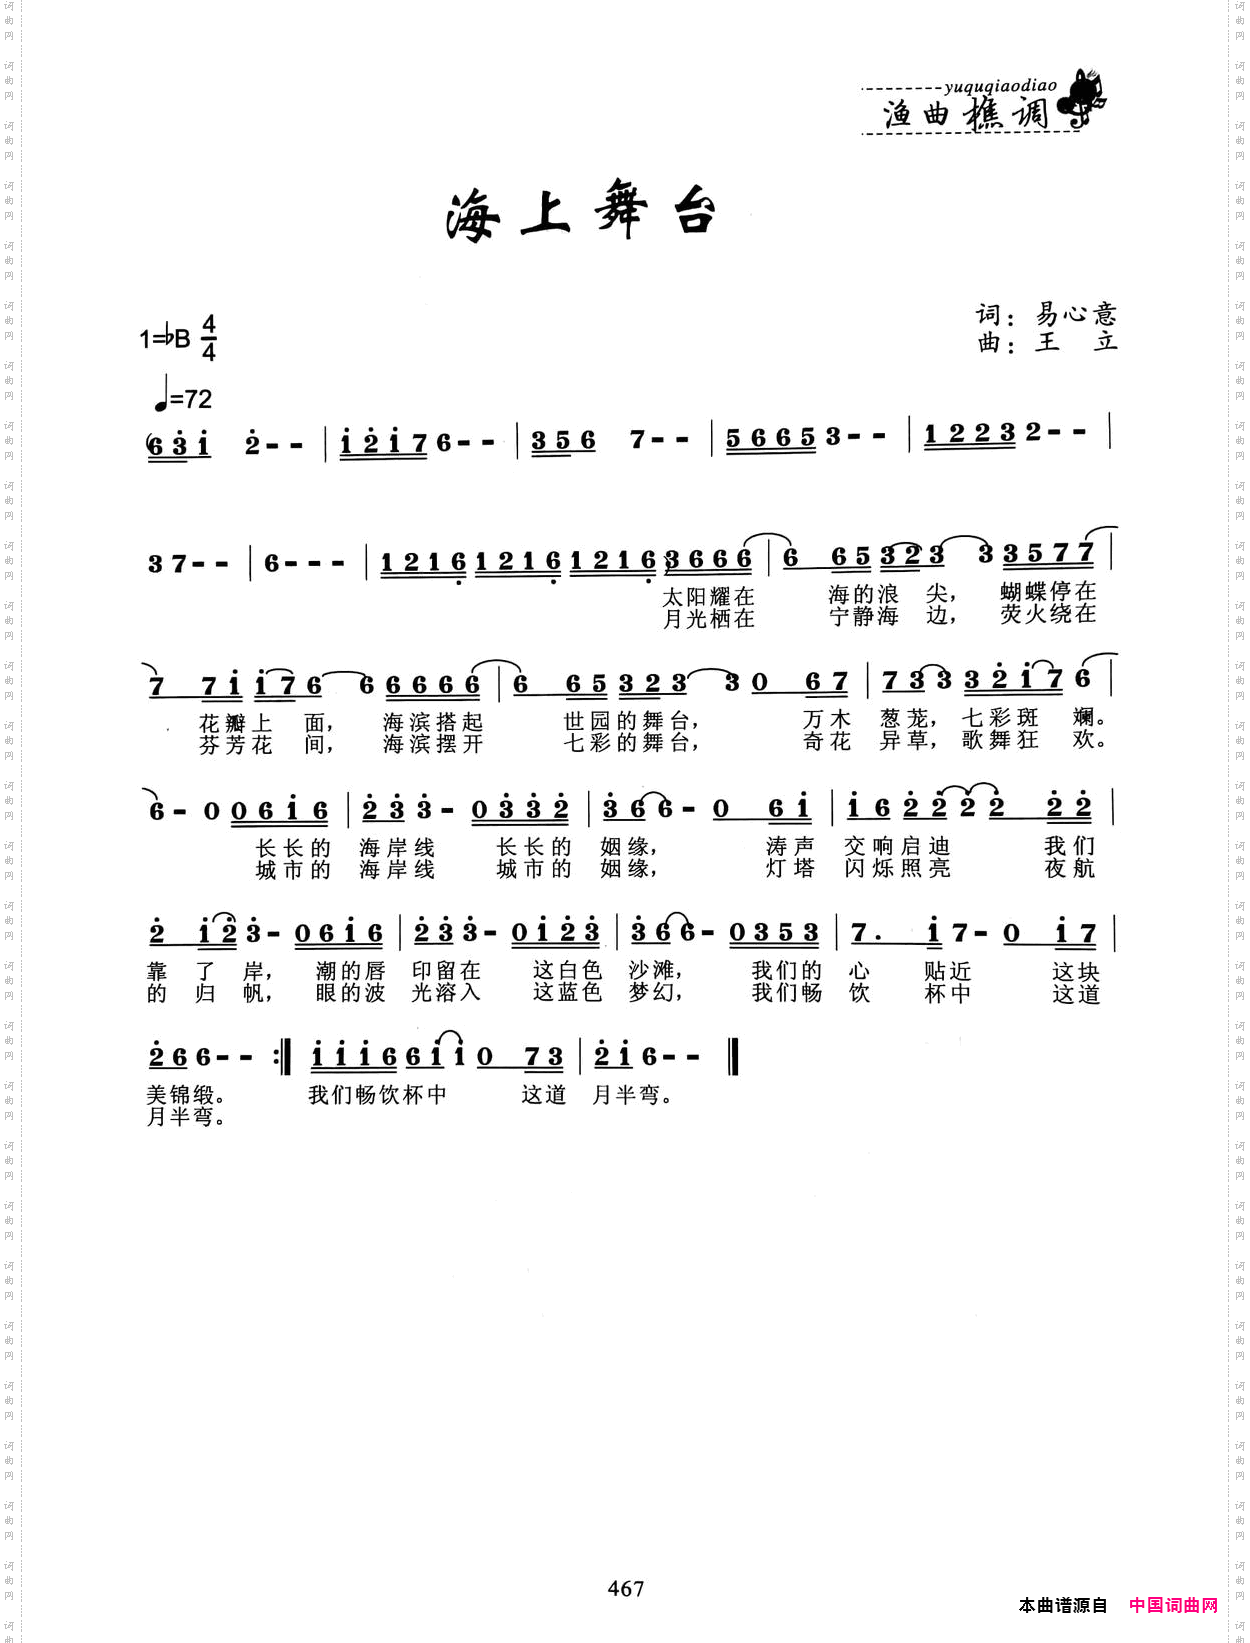 yuquqiaodiao
渔曲樵调
海上舞台
1=♭B 4/4
词：易心意
曲：王 立
♩=72
(6 3 i 2 - - | i 2 i 7 6 - - | 3 5 6 7 - - | 5 6 6 5 3 - - | 1 2 2 3 2 - - |
3 7 - - | 6 - - - | 1 2 1 6 1 2 1 6 1 2 1 6 ) 3 6 6 6 | 6 6 5 3 2 3 3 3 5 7 7 |
太阳耀在 海的浪 尖， 蝴蝶停在
月光栖在 宁静海 边， 荧火绕在
7 7 i i 7 6 6 6 6 6 6 | 6 6 5 3 2 3 3 0 6 7 | 7 3 3 3 2 i 7 6 |
花瓣上 面， 海滨搭起 世园的舞台， 万木 葱茏，七彩斑 斓。
芬芳花 间， 海滨摆开 七彩的舞台， 奇花 异草，歌舞狂 欢。
6 - 0 0 6 i 6 | 2 3 3 - 0 3 3 2 | 3 6 6 - 0 6 i | i 6 2 2 2 2 2 2 |
长长的 海岸线 长长的 姻缘， 涛声 交响启迪 我们
城市的 海岸线 城市的 姻缘， 灯塔 闪烁照亮 夜航
2 i 2 3 - 0 6 i 6 | 2 3 3 - 0 i 2 3 | 3 6 6 - 0 3 5 3 | 7 . i 7 - 0 i 7 |
靠 了 岸， 潮的唇 印留在 这白色 沙滩， 我们的 心 贴近 这块
的 归 帆， 眼的波 光溶入 这蓝色 梦幻， 我们畅 饮 杯中 这道
2 6 6 - - :‖ i i i 6 6 i i 0 7 3 | 2 i 6 - - ‖
美锦缎。 我们畅饮杯中 这道 月半弯。
月半弯。
467
本曲谱源自 中国词曲网